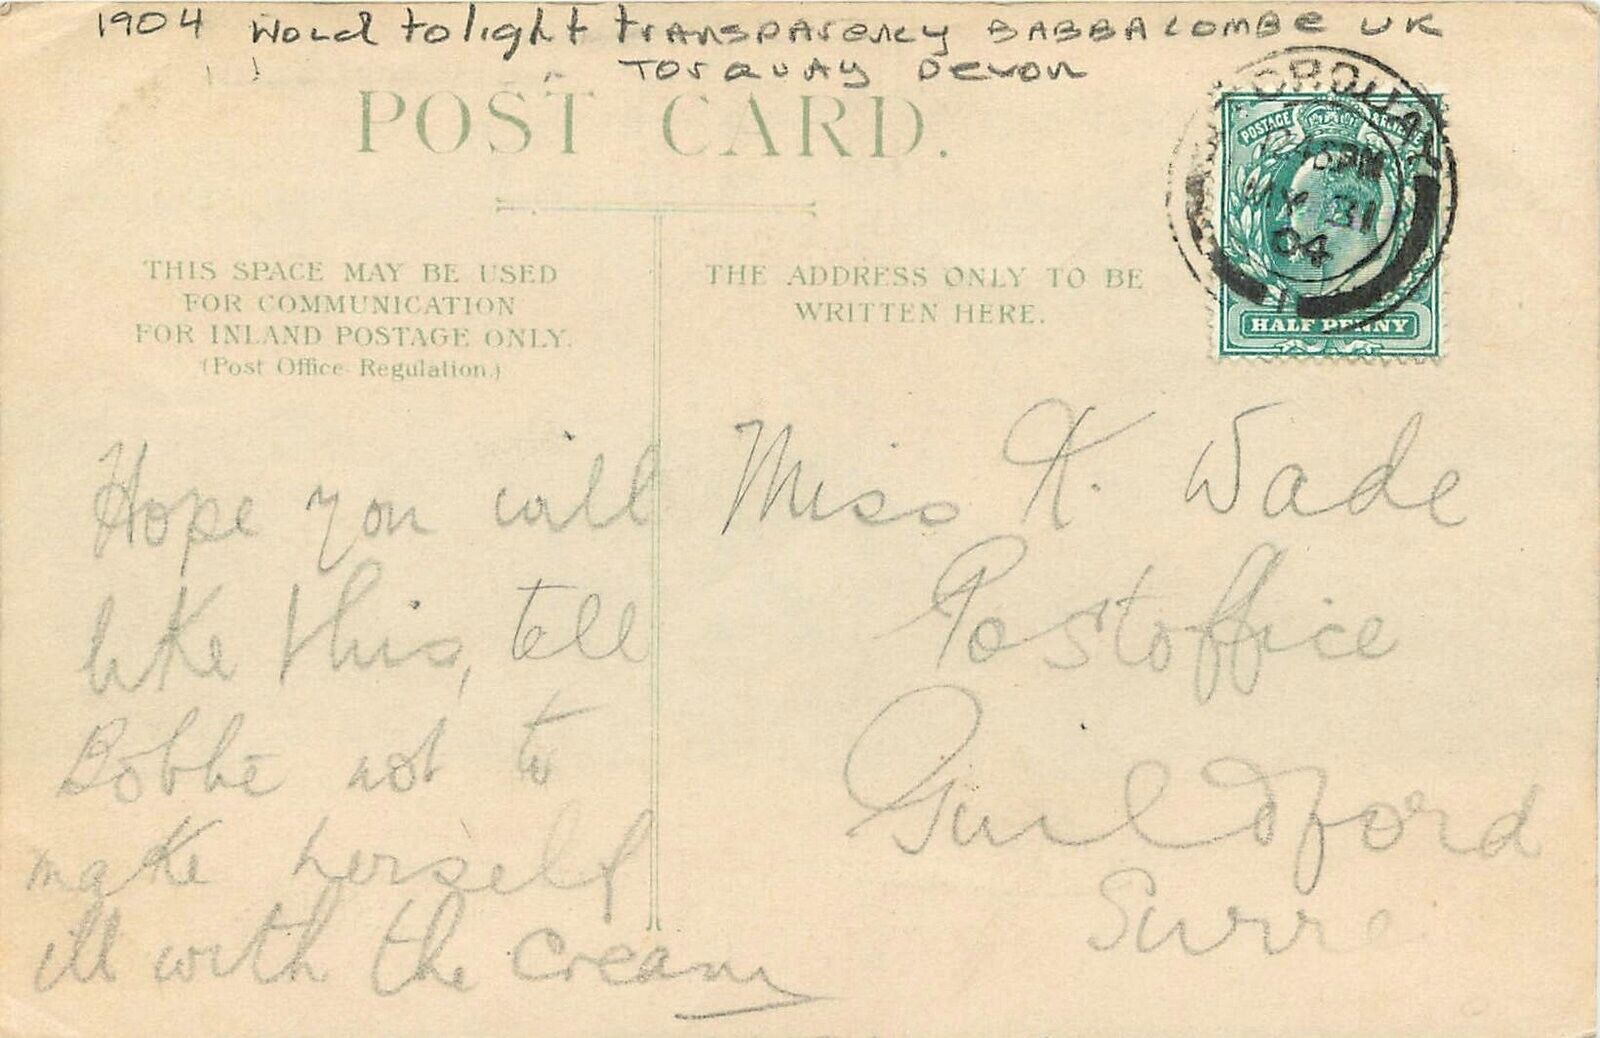 1904 Hold to light transparency BABBACOMBE UK
Torquay Devon
POST CARD.
THIS SPACE MAY BE USED
FOR COMMUNICATION
FOR INLAND POSTAGE ONLY.
(Post Office Regulation.)
THE ADDRESS ONLY TO BE
WRITTEN HERE.
POSTAGE
MY 31
04
HALF PENNY
Hope you will
like this, tell
Bobbe not to
make herself
ill with the cream
Miss K. Wade
Postoffice
Guildford
Surre